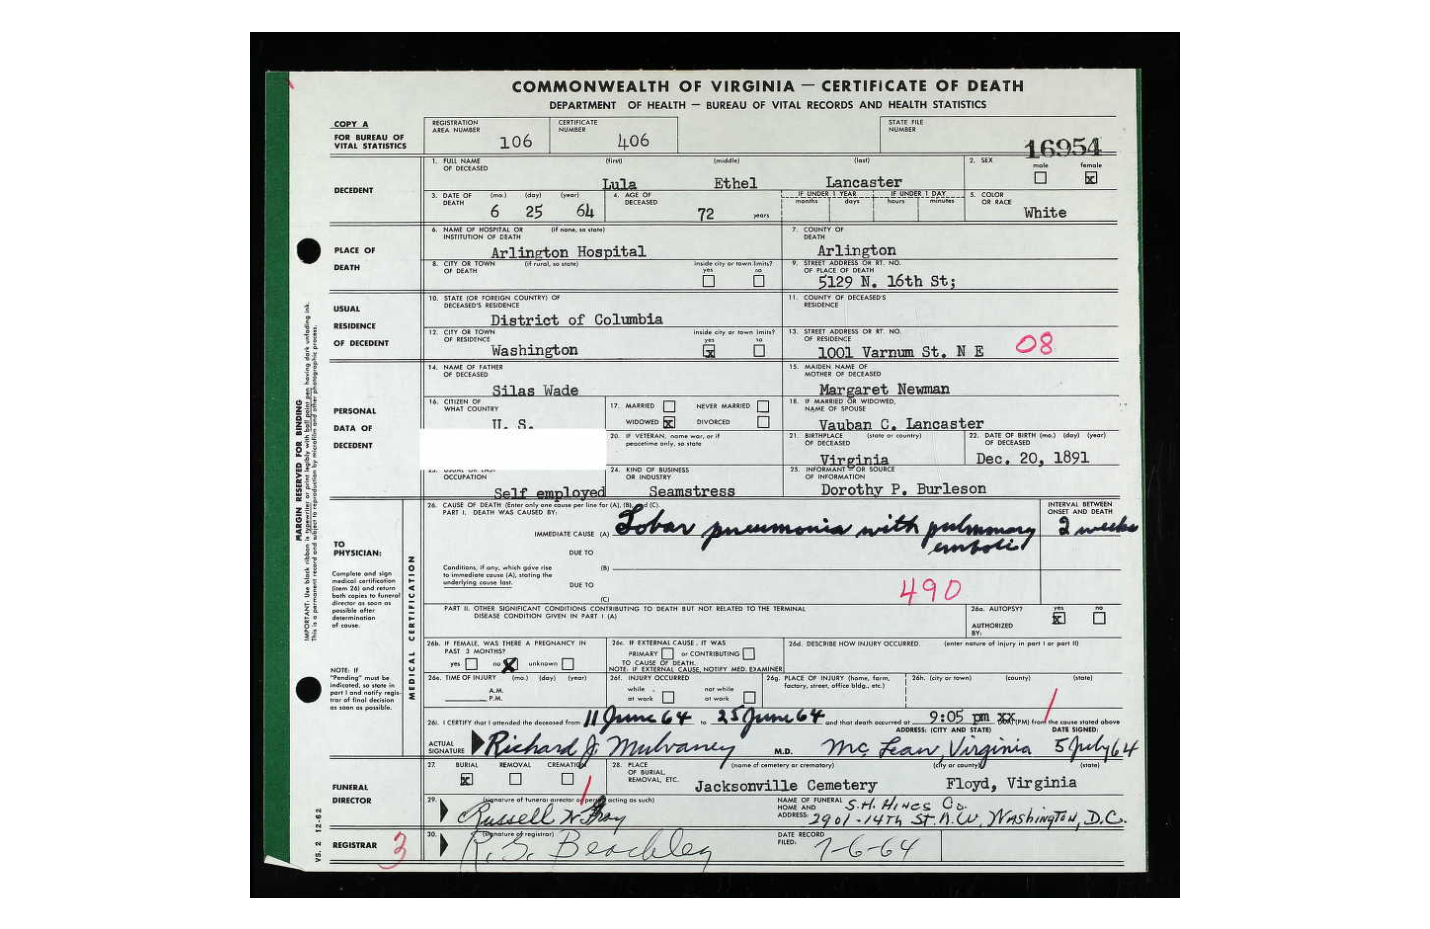 COMMONWEALTH OF VIRGINIA — CERTIFICATE OF DEATH
DEPARTMENT OF HEALTH — BUREAU OF VITAL RECORDS AND HEALTH STATISTICS
COPY A
FOR BUREAU OF VITAL STATISTICS
REGISTRATION AREA NUMBER 106
CERTIFICATE NUMBER 406
STATE FILE NUMBER 16954
DECEDENT
1. FULL NAME OF DECEASED (first) (middle) (last)
Lula Ethel Lancaster
2. SEX male female x
3. DATE OF DEATH (mo.) (day) (year)
6 25 64
4. AGE OF DECEASED 72 years
IF UNDER 1 YEAR months days
IF UNDER 1 DAY hours minutes
5. COLOR OR RACE White
PLACE OF DEATH
6. NAME OF HOSPITAL OR INSTITUTION OF DEATH (if none, so state)
Arlington Hospital
7. COUNTY OF DEATH
Arlington
8. CITY OR TOWN OF DEATH (if rural, so state)
inside city or town limits? yes no
9. STREET ADDRESS OR RT. NO. OF PLACE OF DEATH
5129 N. 16th St;
USUAL RESIDENCE OF DECEDENT
10. STATE (OR FOREIGN COUNTRY) OF DECEASED'S RESIDENCE
District of Columbia
11. COUNTY OF DECEASED'S RESIDENCE
12. CITY OR TOWN OF RESIDENCE
Washington
inside city or town limits? yes x no
13. STREET ADDRESS OR RT. NO. OF RESIDENCE
1001 Varnum St. N E 08
PERSONAL DATA OF DECEDENT
14. NAME OF FATHER OF DECEASED
Silas Wade
15. MAIDEN NAME OF MOTHER OF DECEASED
Margaret Newman
16. CITIZEN OF WHAT COUNTRY
U. S.
17. MARRIED NEVER MARRIED
WIDOWED x DIVORCED
18. IF MARRIED OR WIDOWED, NAME OF SPOUSE
Vauban C. Lancaster
20. IF VETERAN, name war, or if peacetime only, so state
21. BIRTHPLACE OF DECEASED (state or country)
Virginia
22. DATE OF BIRTH (mo.) (day) (year) OF DECEASED
Dec. 20, 1891
OCCUPATION
Self employed
24. KIND OF BUSINESS OR INDUSTRY
Seamstress
25. INFORMANT OR SOURCE OF INFORMATION
Dorothy P. Burleson
MARGIN RESERVED FOR BINDING
TO PHYSICIAN:
Complete and sign medical certification (item 26) and return both copies to funeral director as soon as possible after determination of cause.
NOTE: IF "Pending" must be indicated, so state in part I and notify registrar of final decision as soon as possible.
MEDICAL CERTIFICATION
26. CAUSE OF DEATH (Enter only one cause per line for (A), (B), and (C).
PART I. DEATH WAS CAUSED BY:
INTERVAL BETWEEN ONSET AND DEATH
IMMEDIATE CAUSE (A) Lobar pneumonia with pulmonary emboli 2 weeks
DUE TO
Conditions, if any, which gave rise to immediate cause (A), stating the underlying cause last.
(B)
DUE TO
(C)
490
PART II. OTHER SIGNIFICANT CONDITIONS CONTRIBUTING TO DEATH BUT NOT RELATED TO THE TERMINAL DISEASE CONDITION GIVEN IN PART I (A)
26a. AUTOPSY? yes x no
AUTHORIZED BY:
26b. IF FEMALE, WAS THERE A PREGNANCY IN PAST 3 MONTHS?
yes no X unknown
26c. IF EXTERNAL CAUSE, IT WAS
PRIMARY or CONTRIBUTING
TO CAUSE OF DEATH.
NOTE: IF EXTERNAL CAUSE, NOTIFY MED. EXAMINER
26d. DESCRIBE HOW INJURY OCCURRED. (enter nature of injury in part I or part II)
26e. TIME OF INJURY (mo.) (day) (year)
A.M.
P.M.
26f. INJURY OCCURRED
while at work not while at work
26g. PLACE OF INJURY (home, farm, factory, street, office bldg., etc.)
26h. (city or town) (county) (state)
26i. I CERTIFY that I attended the deceased from 11 June 64 to 25 June 64 and that death occurred at 9:05 pm xx (PM) from the cause stated above
ADDRESS: (CITY AND STATE) DATE SIGNED:
ACTUAL SIGNATURE Richard J. Mulvaney M.D. Mc Lean, Virginia 5 July 64
FUNERAL DIRECTOR
27. BURIAL x REMOVAL CREMATION
28. PLACE OF BURIAL, REMOVAL, ETC. (name of cemetery or crematory) (city or county) (state)
Jacksonville Cemetery Floyd, Virginia
29. (signature of funeral director or person acting as such)
Russell W.
NAME OF FUNERAL HOME AND ADDRESS: S.H. Hines Co.
2901-14th St. N.W, Washington, D.C.
REGISTRAR 3
30. (signature of registrar)
R. S. Beachley
DATE RECORD FILED: 7-6-64
VS. 2 12-62